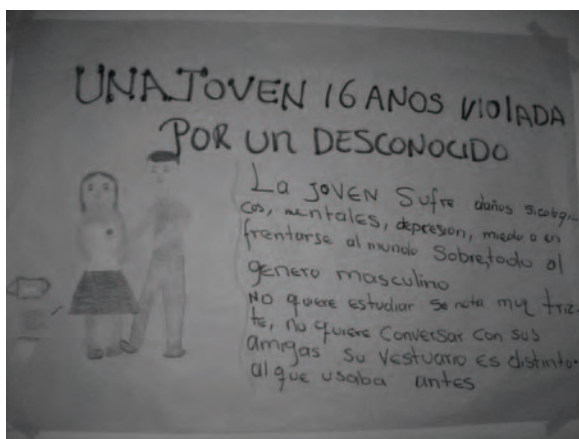 UNA JOVEN 16 ANOS VIOLADA
POR UN DESCONOCIDO
La JOVEN Sufre daños sicologi-
cos, mentales, depresion, miedo a en
frentarse al mundo Sobretodo al
genero masculino
NO quiere estudiar se nota muy triz-
te, no quiere Conversar con sus
amigas su Vestuario es distinto
al que usaba antes